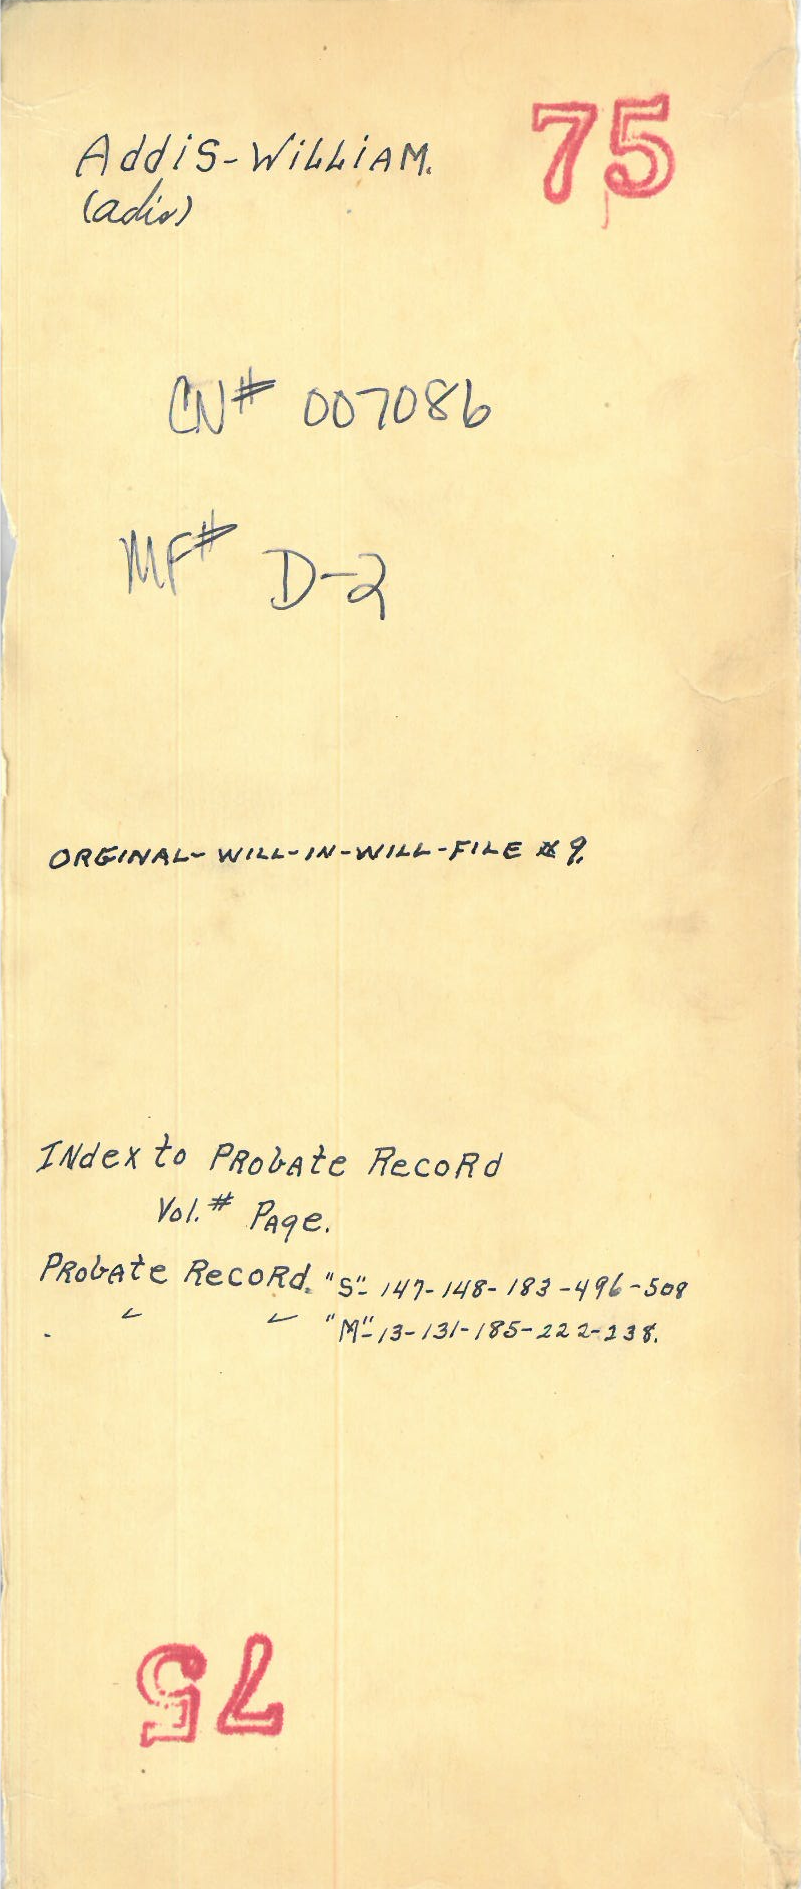 75
Addis-William.
(adis)
CN# 007086
MF# D-2
ORGINAL- WILL-IN-WILL-FILE # 9.
Index to Probate Record
Vol.# Page.
Probate Record. "S"- 147-148-183-496-508
" " "M"-13-131-185-222-238.
75